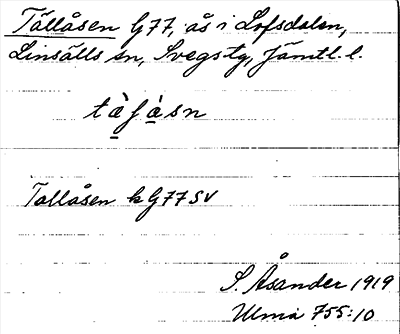 Tållåsen G77, ås i Lofsdalen,
Linsälls sn, Svegs tg, Jämtl. l.
tàfàsn
Tallåsen k G77 SV
S. Åsander 1919
Ulma 755:10